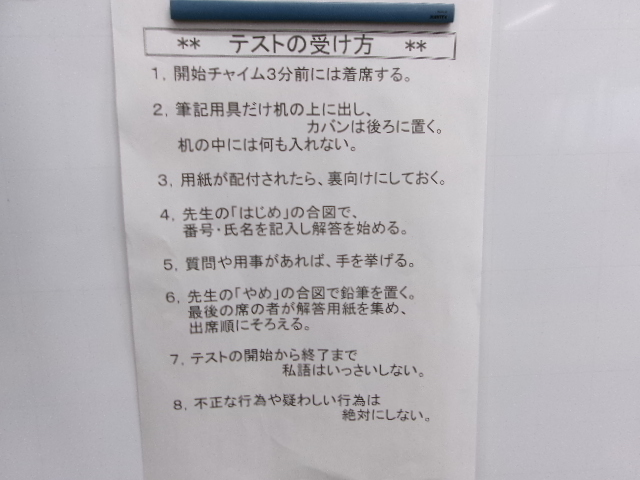 ** テストの受け方 **
1，開始チャイム3分前には着席する。
2，筆記用具だけ机の上に出し、
カバンは後ろに置く。
机の中には何も入れない。
3，用紙が配付されたら、裏向けにしておく。
4，先生の「はじめ」の合図で、
番号・氏名を記入し解答を始める。
5，質問や用事があれば、手を挙げる。
6，先生の「やめ」の合図で鉛筆を置く。
最後の席の者が解答用紙を集め、
出席順にそろえる。
7，テストの開始から終了まで
私語はいっさいしない。
8，不正な行為や疑わしい行為は
絶対にしない。